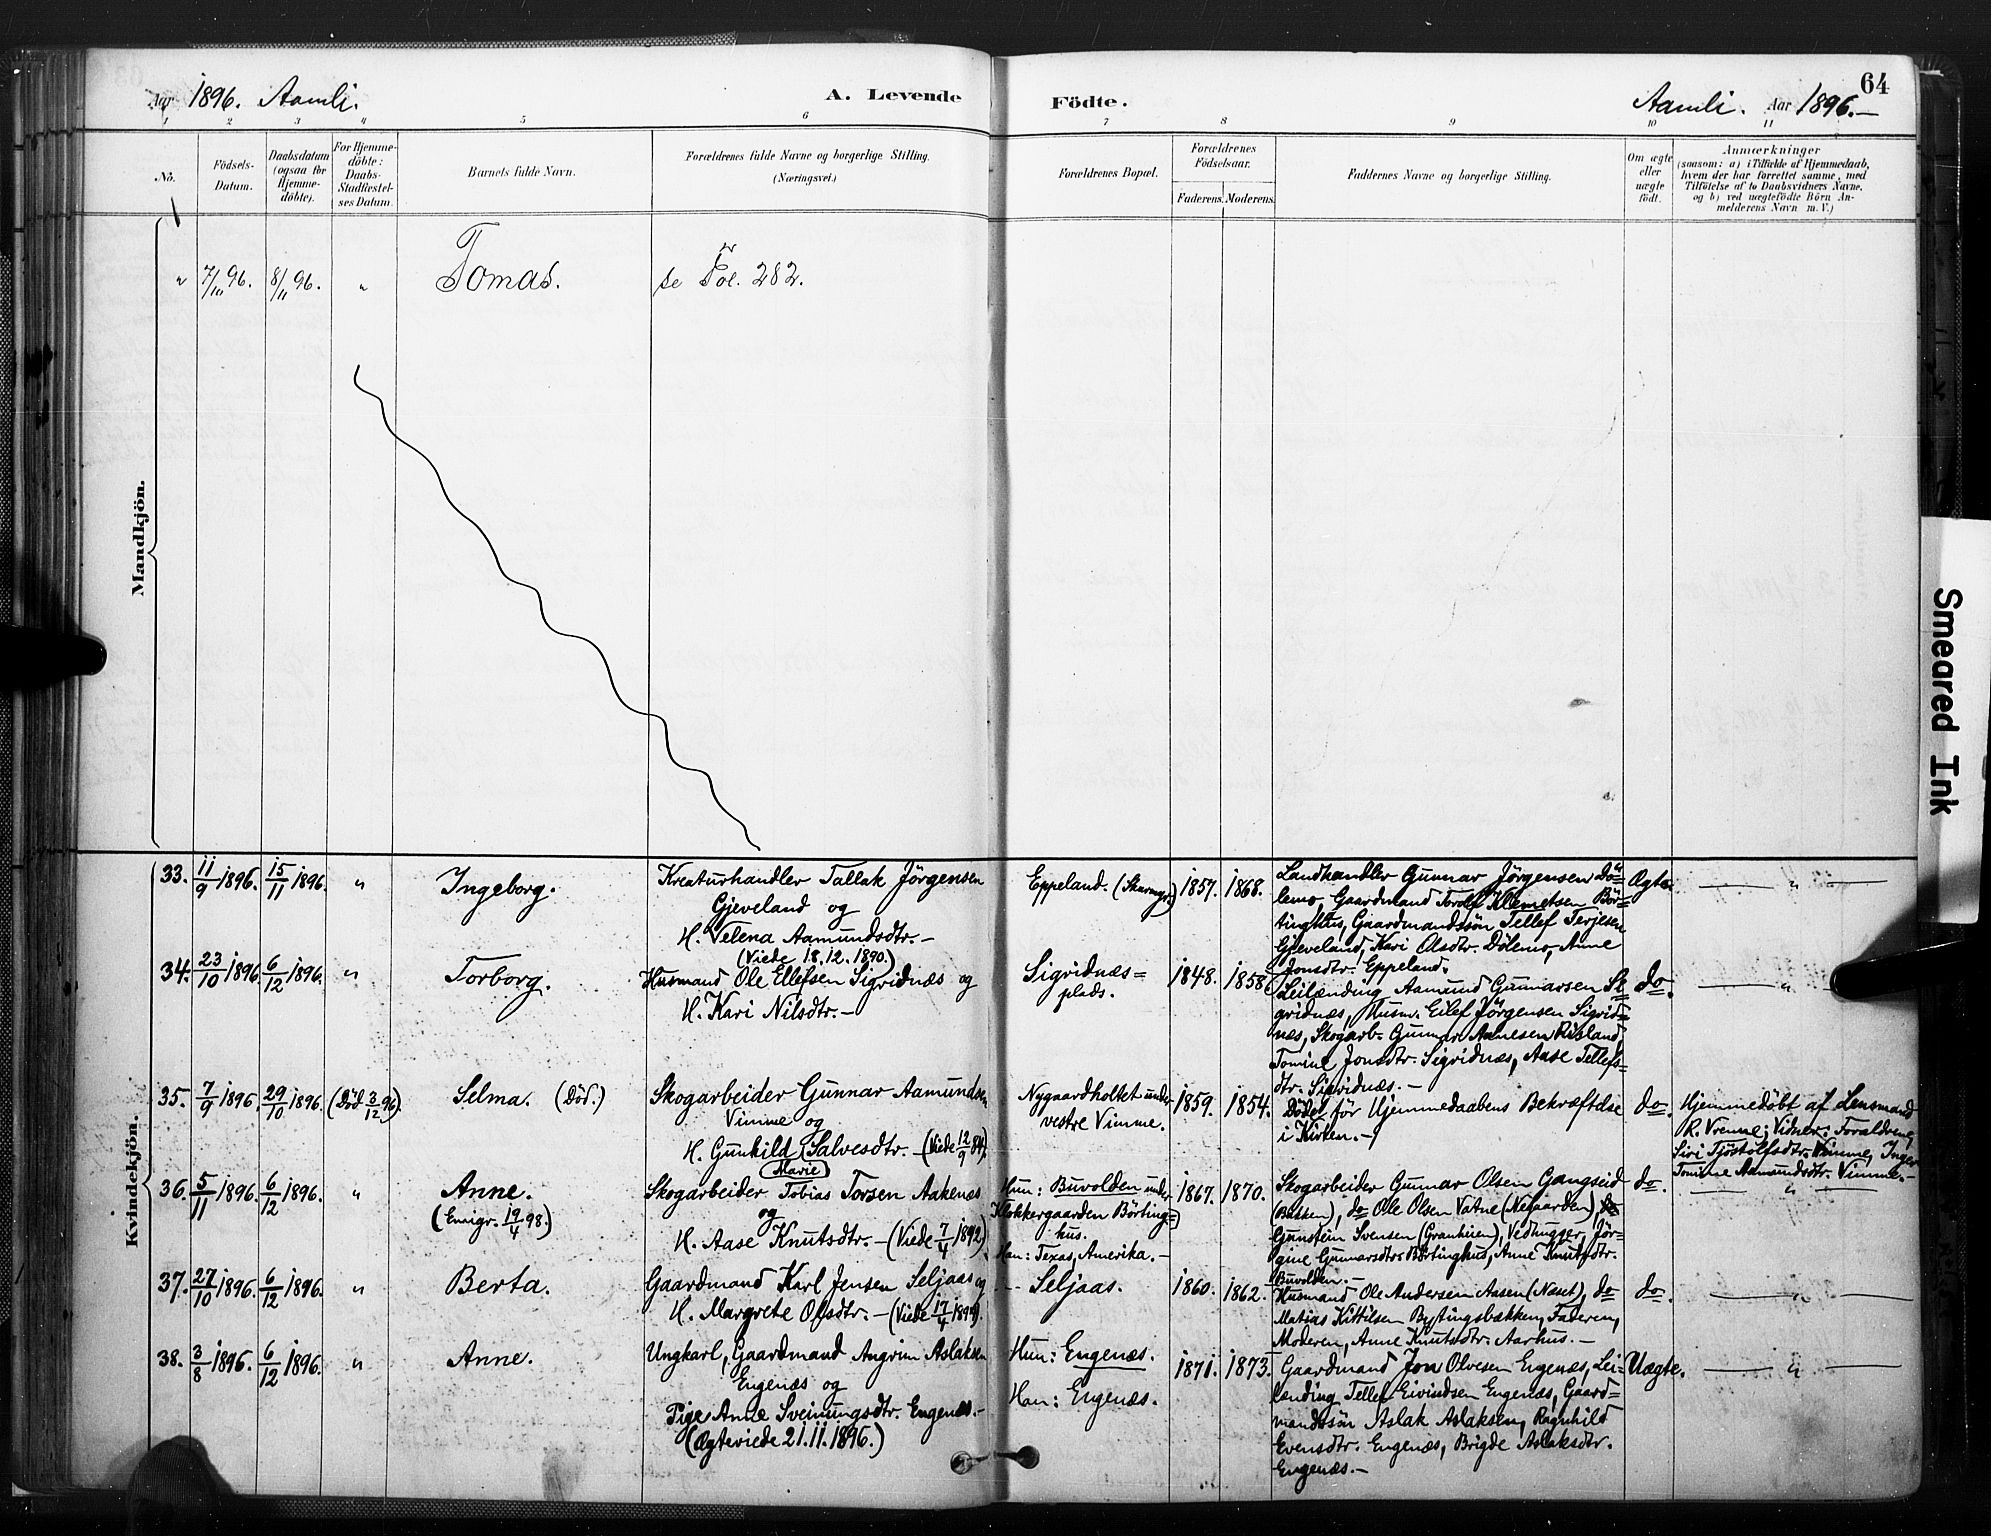 Aar 1896. Aamli. A. Levende Födte. Aamli. Aar 1896.— 64
1 2 3 4 5 6 7 8 9 10 11
No.
Födsels-
Datum.
Daabsdatum
(ogsaa for
Hjemme-
döbte).
For Hjemme-
döbte:
Daabs-
Stadfæstel-
ses Datum.
Barnets fulde Navn.
Forældrenes fulde Navne og borgerlige Stilling.
(Næringsvei.)
Forældrenes Bopæl.
Forældrenes
Födselsaar.
Faderens. Moderens.
Faddernes Navne og borgerlige Stilling.
Om ægte
eller
uægte
födt.
Anmærkninger
(saasom: a) i Tilfælde af Hjemmedaab,
hvem der har forrettet samme, med
Tilföielse af to Daabsvidners Navne,
og b) ved uægtefödte Börn An-
melderens Navn m. V.)
Mandkjön.
" 7/10 96. 8/11 96. " Tomas. se Fol. 282.
Kvindekjön.
33. 11/9 1896. 15/11 1896. " Ingeborg.
Kreaturhandler Tallak Jörgensen
Gjeveland og
H. Telena Aamundsdtr.—
(Viede 18.12.1890.)
Eppeland.
1857. 1868.
Landhandler Gunnar Jörgensen Dö=
lemo, Gaardmand Torolf Klemetsen Bör=
tinghus, Gaardmandssön Tellef Terjesen
Gjeveland, Kari Olsdtr. Dölemo, Anne
Jonsdtr. Eppeland.
Ægte. — " —
34. 23/10 1896 6/12 1896. " Torborg.
Husmand Ole Ellefsen Sigridnæs og
H. Kari Nilsdtr.—
Sigridnæs=
plads.
1848. 1858.
Leilænding Aamund Gunnarsen Si=
gridnæs, Husm. Eilef Jörgensen Sigrid=
næs, Skogarb. Gunnar Aanesen Risland,
Tomine Jonsdtr. Sigridnæs, Aase Tellefs=
dtr. Sigridnæs.—
do. — " —
35. 7/9 1896. 29/10 1896. (Död 3/12 96). Selma. (Död.)
Skogarbeider Gunnar Aamundsen
Vimme og
H. Gunhild Salvesdtr.—(Viede 12/9 84).
(Marie)
Nygaardholtet under
vestre Vimme.
1859. 1854.
Dödet för Hjemmedaabens Bekræftelse
i Kirken.—
do.
Hjemmedöbt af Lensmand
R. Vimme; Vidner: Forældrene,
Siri Tjöstolfsdtr. Vimme, Inger
Tomine Aamundsdtr. Vimme.—
36. 5/11 1896. 6/12 1896. " Anne.
(Emigr. 19/4 98.)
Skogarbeider Tobias Torsen Aakenæs
og
H. Aase Knutsdtr.—(Viede 7/4 1892).
Hun: Buvolden under
Klokkergaarden Börting=
hus.
Han: Texas, Amerika.—
1867. 1870.
Skogarbeider Gunnar Olsen Gangseid
(Bakken), do Ole Olsen Vatne (Neigaarden), do
Gunstein Svensen (Granheien), Vedhugger, Jör=
gine Gunnarsdtr. Börtinghus, Anne Knutsdtr.
Buvolden.—
do. — " —
37. 27/10 1896. 6/12 1896. " Berta.
Gaardmand Karl Jensen Seljaas og
H. Margrete Olsdtr.—
Seljaas.
1860. 1862.
Husmand Ole Andersen Aasen (Næset), do
Matias Kittilsen Bytingsbækken, Faderen,
Moderen, Anne Knutsdtr. Aarhus.—
do. — " —
38. 3/8 1896. 6/12 1896. " Anne.
Ungkarl, Gaardmand Angrim Aslaksen
Engenæs og
Pige Anne Sveinungsdtr. Engenæs.—
(Ægteviede 21.11.1896.)
Hun: Engenæs.
Han: Engenæs.
1871. 1873.
Gaardmand Jon Olvesen Engenæs, Lei=
lænding Tellef Eivindsen Engenæs, Gaard=
mandssön Aslak Aslaksen, Ragnhild
Evensdtr. Engenæs, Brigde Aslaksdtr.
Engenæs.—
Uægte. — " —
Smeared Ink